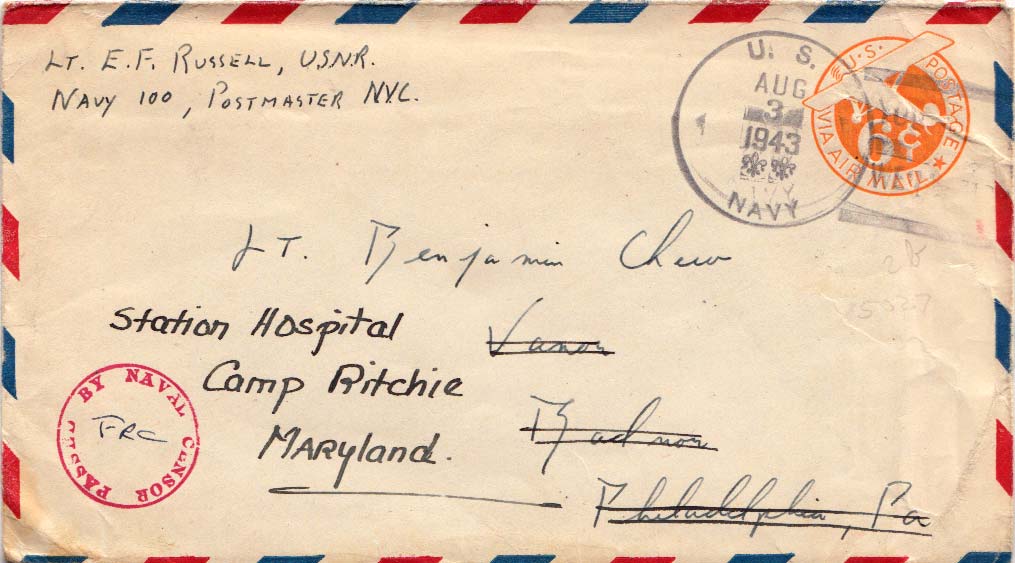 LT. E.F. RUSSELL, U.S.N.R.
NAVY 100, POSTMASTER N.Y.C.
U. S.
AUG
3
1943
NAVY
U.S. POSTAGE
VIA AIR MAIL
6c
Lt. Benjamin Chew
Station Hospital
Camp Ritchie
MARyland.
Vanor
Radnor
Philadelphia, Pa
PASSED BY NAVAL CENSOR
FRC